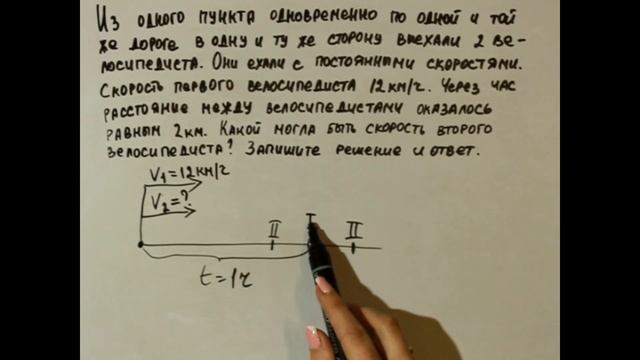 Из одного пункта одновременно по одной и той
же дороге в одну и ту же сторону выехали 2 ве-
лосипедиста. Они ехали с постоянными скоростями.
Скорость первого велосипедиста 12 км/ч. Через час
расстояние между велосипедистами оказалось
равным 2 км. Какой могла быть скорость второго
велосипедиста? Запишите решение и ответ.
V₁=12км/ч
V₂=?
II I II
t=1ч